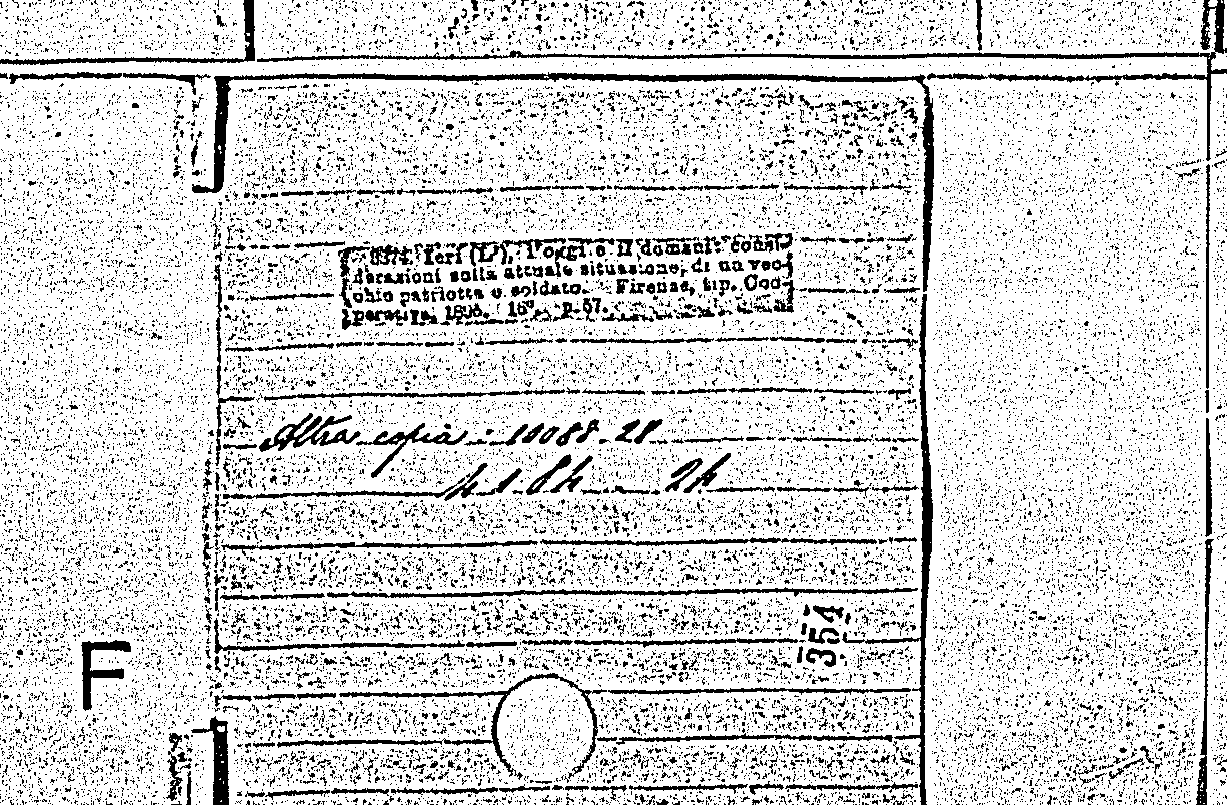 Ieri (L'), l'oggi e il domani: consi-
derazioni sulla attuale situazione, di un vec-
chio patriotta e soldato. Firenze, tip. Coo-
perativa, 16°. p. 57.
Altra copia: 10088.28
4184. 24
354
F